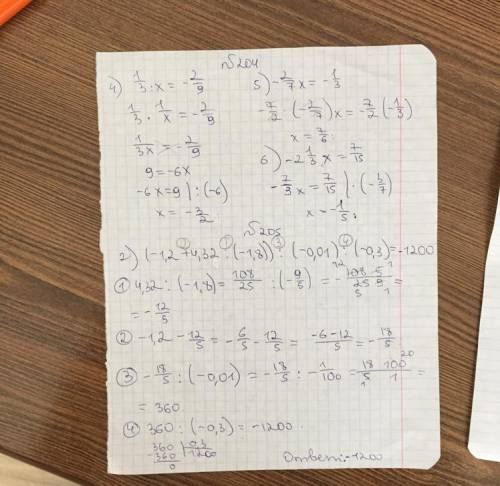 №204
4) 1/3 : x = -2/9
1/3 · 1/x = -2/9
1/3x = -2/9
9 = -6x
-6x = 9 | : (-6)
x = -3/2
5) -2/7 x = -1/3
-7/2 · (-2/7) x = -7/2 (-1/3)
x = 7/6
6) -2 1/3 x = 7/15
-7/3 x = 7/15 | · (-3/7)
x = -1/5
№205
2) (-1,2 + 4,32 : (-1,8)) : (-0,01) : (-0,3) = -1200
① 4,32 : (-1,8) = 108/25 : (-9/5) = -108·5/25·9 =
= -12/5
② -1,2 - 12/5 = -6/5 - 12/5 = -6-12/5 = -18/5
③ -18/5 : (-0,01) = -18/5 : -1/100 = 18·100/5·1 =
= 360
④ 360 : (-0,3) = -1200
360 | 0,3
-360 | 1200
0
Ответ: -1200